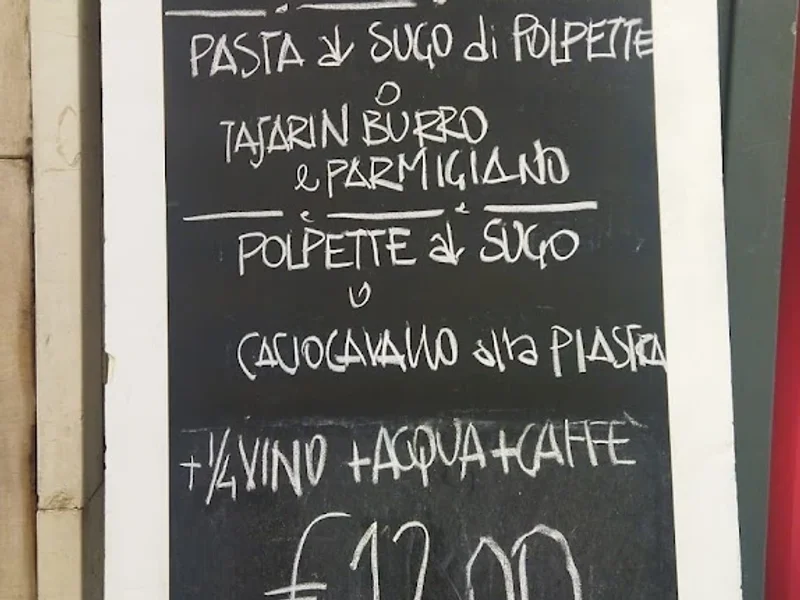 PASTA al SUGO di POLPETTE
o
TAJARIN BURRO
e PARMIGIANO
POLPETTE al SUGO
o
CACIOCAVALLO alla PIASTRA
+ 1/4 VINO + ACQUA + CAFFÈ
€ 12,00